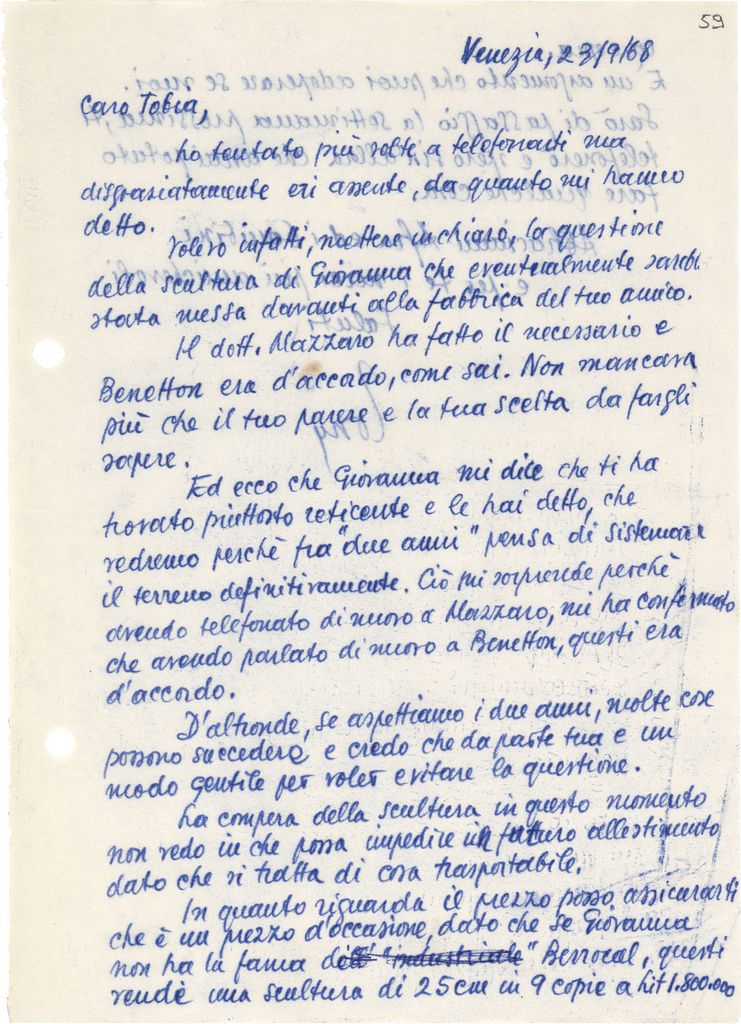 59
Venezia, 23/9/68
Caro Tobia,
ho tentato più volte a telefonarti ma
disgraziatamente eri assente, da quanto mi hanno
detto.
Volevo infatti, mettere in chiaro, la questione
della scultura di Giovanna che eventualmente sarebbe
stata messa davanti alla fabbrica del tuo amico.
Il dott. Mazzaro ha fatto il necessario e
Benetton era d'accordo, come sai. Non mancava
più che il tuo parere e la tua scelta da fargli
sapere.
Ed ecco che Giovanna mi dice che ti ha
trovato piuttosto reticente e le hai detto, che
vedremo perchè fra "due anni" pensa di sistemare
il terreno definitivamente. Ciò mi sorprende perchè
avendo telefonato di nuovo a Mazzaro, mi ha confermato
che avendo parlato di nuovo a Benetton, questi era
d'accordo.
D'altronde, se aspettiamo i due anni, molte cose
possono succedere e credo che da parte tua e un
modo gentile per voler evitare la questione.
La compera della scultura in questo momento
non vedo in che possa impedire in futuro allestimento,
dato che si tratta di cosa trasportabile.
In quanto riguarda il prezzo posso assicurarti
che è un prezzo d'occasione dato che se Giovanna
non ha la fama dell' "industriale" Berrocal, questi
vende una scultura di 25cm in 9 copie a Lit 1.800.000